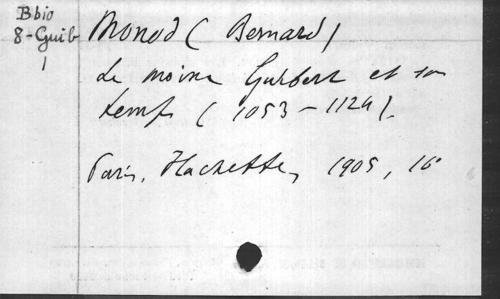 Bbio
8-Guib
1
Monod ( Bernard )
Le moine Guibert et son
temps ( 1053 - 1124 ).
Paris, Hachette, 1905, 16°